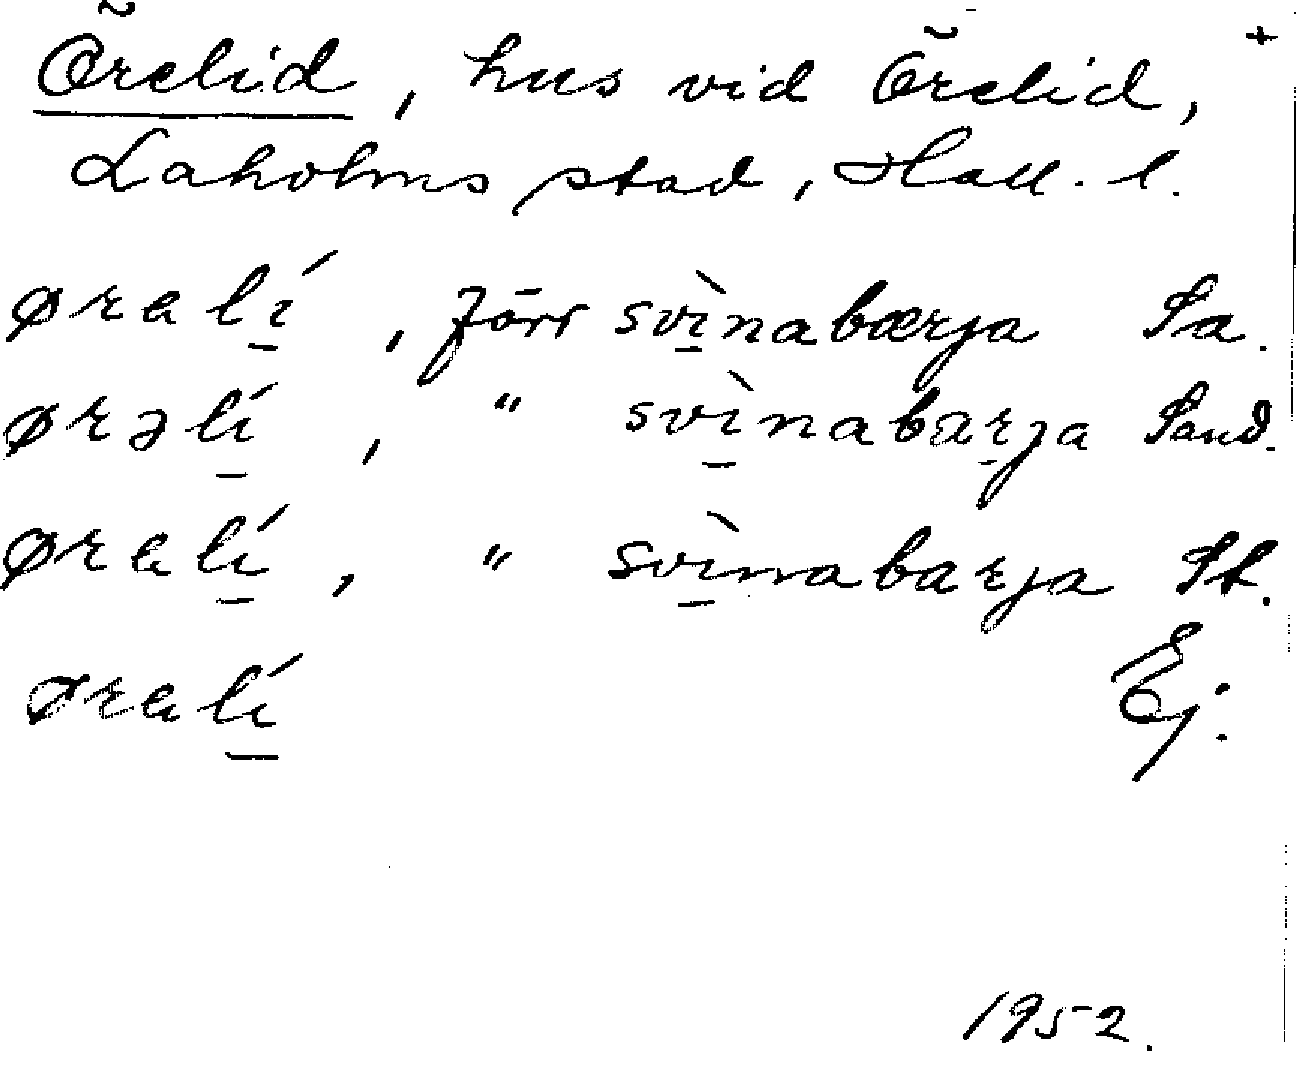 Örelid, hus vid Örelid, +
Laholms stad, Hall. l.
øralí̱, förr svì̱nabærja Sa.
ørəlí̱, " svì̱nabarja Sand.
øralí̱, " svì̱nabarja St.
øralí̱ Ej.
1952.